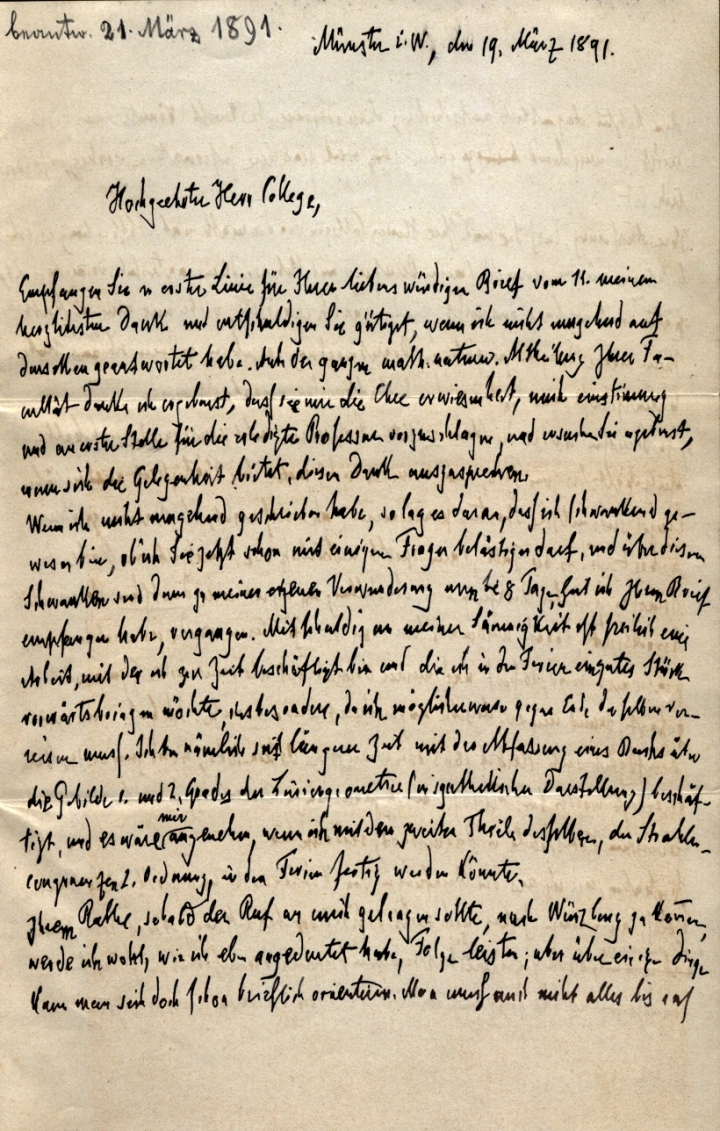 beantw. 21. März 1891.
Münster i. W., den 19. März 1891.
Hochgeehrter Herr College,
Empfangen Sie in erster Linie für Ihren liebenswürdigen Brief vom 11. meinen
herzlichsten Dank und entschuldigen Sie gütigst, wenn ich nicht umgehend auf
denselben geantwortet habe. Auch der ganzen math. naturw. Abtheilung Ihrer Fa-
cultät danke ich ergebenst, dass sie mir die Ehre erwiesen hat, mich einstimmig
und an erster Stelle für die erledigte Professur vorzuschlagen, und ersuche Sie ergebenst,
wenn sich die Gelegenheit bietet, diesen Dank auszusprechen.
Wenn ich nicht umgehend geschrieben habe, so lag es daran, dass ich schwankend ge-
wesen bin, ob ich Sie jetzt schon mit einigen Fragen belästigen darf, und über diesem
Schwanken sind dann zu meiner eigenen Verwunderung 8 Tage, seit ich Ihren Brief
empfangen habe, vergangen. Mitschuldig an meiner Säumigkeit ist freilich eine
Arbeit, mit der ich zur Zeit beschäftigt bin und die ich in den Ferien ein gutes Stück
vorwärts bringen möchte, insbesondere, da ich möglicherweise gegen Ende derselben ver-
reisen muss. Ich bin nämlich seit längerer Zeit mit der Abfassung eines Buchs über
die Gebilde 1. und 2. Grades der Liniengeometrie (in synthetischer Darstellung) beschäf-
tigt, und es wäre mir angenehm, wenn ich mit dem zweiten Theile desselben, den Strahlen-
congruenzen 2. Ordnung, in den Ferien fertig werden könnte.
Ihrem Rathe, sobald der Ruf an mich gelangen sollte, nach Würzburg zu kommen,
werde ich wohl, wie ich eben angedeutet habe, Folge leisten; aber über einige Dinge
kann man sich doch schon brieflich orientieren. Man muss auch nicht alles bis auf